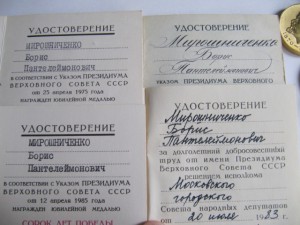 УДОСТОВЕРЕНИЕ
МИРОШНИЧЕНКО
Борис
Пантелеймонович
В СООТВЕТСТВИИ С УКАЗОМ ПРЕЗИДИУМА
ВЕРХОВНОГО СОВЕТА СССР
от 25 апреля 1975 года
НАГРАЖДЕН ЮБИЛЕЙНОЙ МЕДАЛЬЮ
УДОСТОВЕРЕНИЕ
МИРОШНИЧЕНКО
Борис
Пантелеймонович
В СООТВЕТСТВИИ С УКАЗОМ ПРЕЗИДИУМА
ВЕРХОВНОГО СОВЕТА СССР
от 12 апреля 1985 года
НАГРАЖДЕН ЮБИЛЕЙНОЙ МЕДАЛЬЮ
СОРОК ЛЕТ ПОБЕДЫ
УДОСТОВЕРЕНИЕ
Мирошниченко
Борис
Пантелеймонович
УКАЗОМ ПРЕЗИДИУМА
ВЕРХОВНОГО СОВЕТА СССР
УДОСТОВЕРЕНИЕ
Мирошниченко
Борис
Пантелеймонович
за долголетний добросовестный
труд от имени Президиума
Верховного Совета СССР
решением исполкома
Московского
городского
Совета народных депутатов
от 20 июля 1983 г.